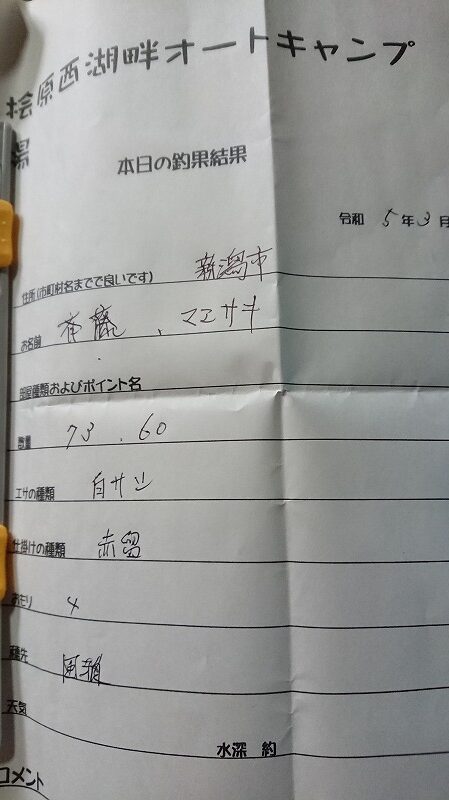 桧原西湖畔オートキャンプ
場
本日の釣果結果
令和 5年3月
住所(市町村名までで良いです) 新潟市
お名前 斉藤、マエサキ
部屋種類およびポイント名
数量 73.60
エサの種類 白サシ
仕掛けの種類 赤留
おもり 4
穂先
天気 水深 約
コメント